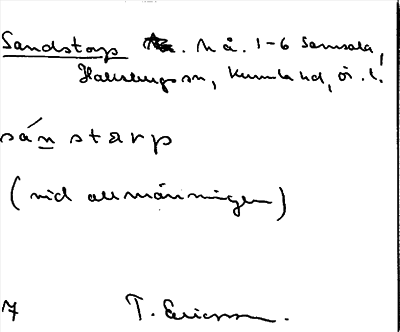 Sandstorp . nå. 1-6 Samsala,
Hallsbergs sn, Kumla hd, ör. l.
sánstarp
(vid allmänningen)
7 T. Ericsson.